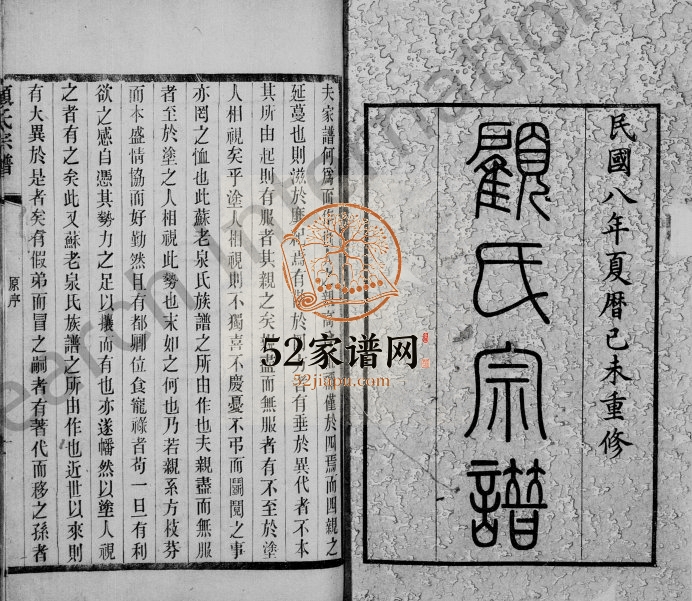 民國八年夏曆己未重修
顧氏宗譜
夫家譜何為而
僅於四焉而四親之
延蔓也則
有
於異代者不本
其所由起則有服者其親之矣親盡而無服者有不至於塗
人相視矣乎塗人相視則不獨喜不慶憂不弔而鬩閱之事
亦罔之恤也此蘇老泉氏族譜之所由作也夫親盡而無服
者至於塗之人相視此勢也末如之何也乃若親系方枝芬
而本盛情協而好勤然且有都剛位食寵祿者苟一旦有利
欲之感自憑其勢力之足以攘而有也亦遂幡然以塗人視
之者有之矣此又蘇老泉氏族譜之所由作也近世以來則
有大異於是者矣有假弟而冒之嗣者有著代而移之孫者
顧氏宗譜
原序
52家谱网
52jiapu.com
earch Internation